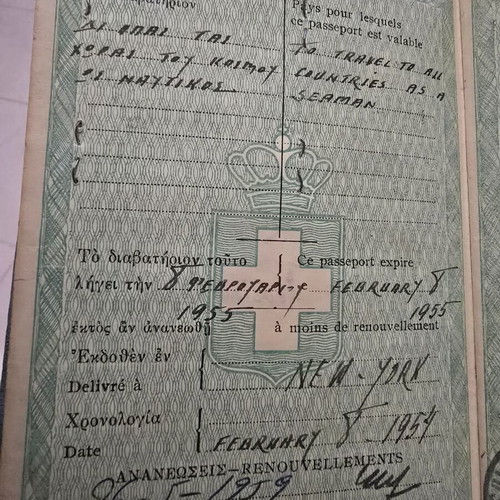 Pays pour lesquels
ce passeport est valable
ΔΙ ΟΛΑΣ ΤΑΣ
ΧΩΡΑΣ ΤΟΥ ΚΟΣΜΟΥ
ΩΣ ΝΑΥΤΙΚΟΣ
TO TRAVEL TO ALL
COUNTRIES AS A
SEAMAN
Τὸ διαβατήριον τοῦτο
λήγει τὴν 8 ΦΕΒΡΟΥΑΡΙΟΥ
1955
ἐκτὸς ἂν ἀνανεωθῇ
Ce passeport expire
FEBRUARY 8
1955
à moins de renouvellement
Ἐκδοθὲν ἐν
Delivré à
NEW-YORK
Χρονολογία
Date
FEBRUARY 8 - 1954
ΑΝΑΝΕΩΣΕΙΣ—RENOUVELLEMENTS
1959